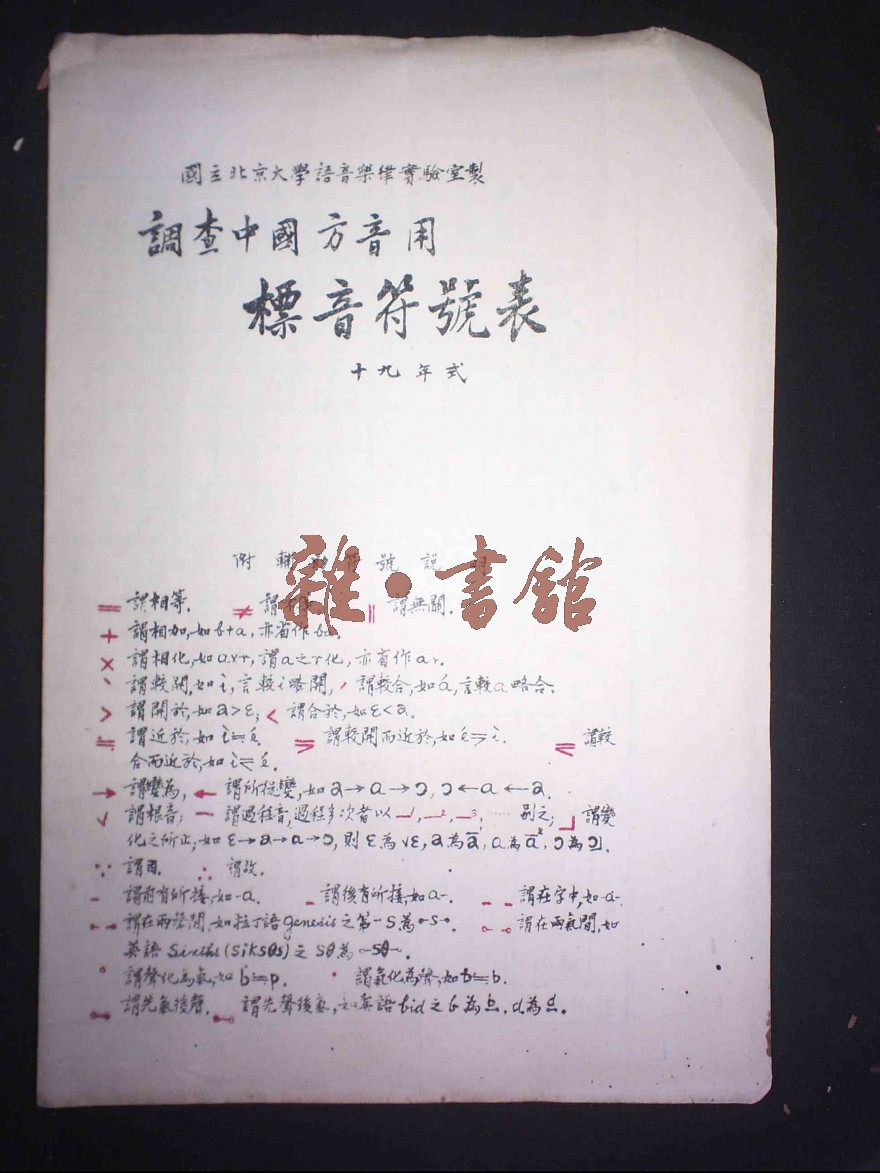 國立北京大學語音樂律實驗室製
調查中國方音用
標音符號表
十九年式
附 輔 號 說
雜·書館
= 謂相等. ≠ 謂 ‖ 謂無關.
+ 謂相加,如b+a,亦省作ba.
× 謂相化,如a×r,謂a之r化,亦省作ar.
ˋ 謂較開,如ì,言較i略開, ˊ 謂較合,如á,言較a略合.
> 謂開於,如a>ε; < 謂合於,如ε<a.
謂近於,如 謂較開而近於,如 謂較
合而近於,如
→ 謂變為, ← 謂所從變,如a→ɑ→ɔ, ɔ←ɑ←a.
√ 謂根音; — 謂過程音,過程多次者以 —¹, —², —³, …… 別之; ┘ 謂變
化之所止,如ε→a→ɑ→ɔ,則ε為√ε, a為 , ɑ為 , ɔ為
∵ 謂因. ∴ 謂故.
- 謂前有所接,如-a. - 謂後有所接,如a-. - - 謂在字中,如-a-.
謂在兩聲間,如拉丁語genesis之第一s為 謂在兩氣間,如
英語sixths(siksθs)之sθ為
謂聲化為氣,如 謂氣化為聲,如
謂先氣後聲. 謂先聲後氣,如英語bid之b為 , d為